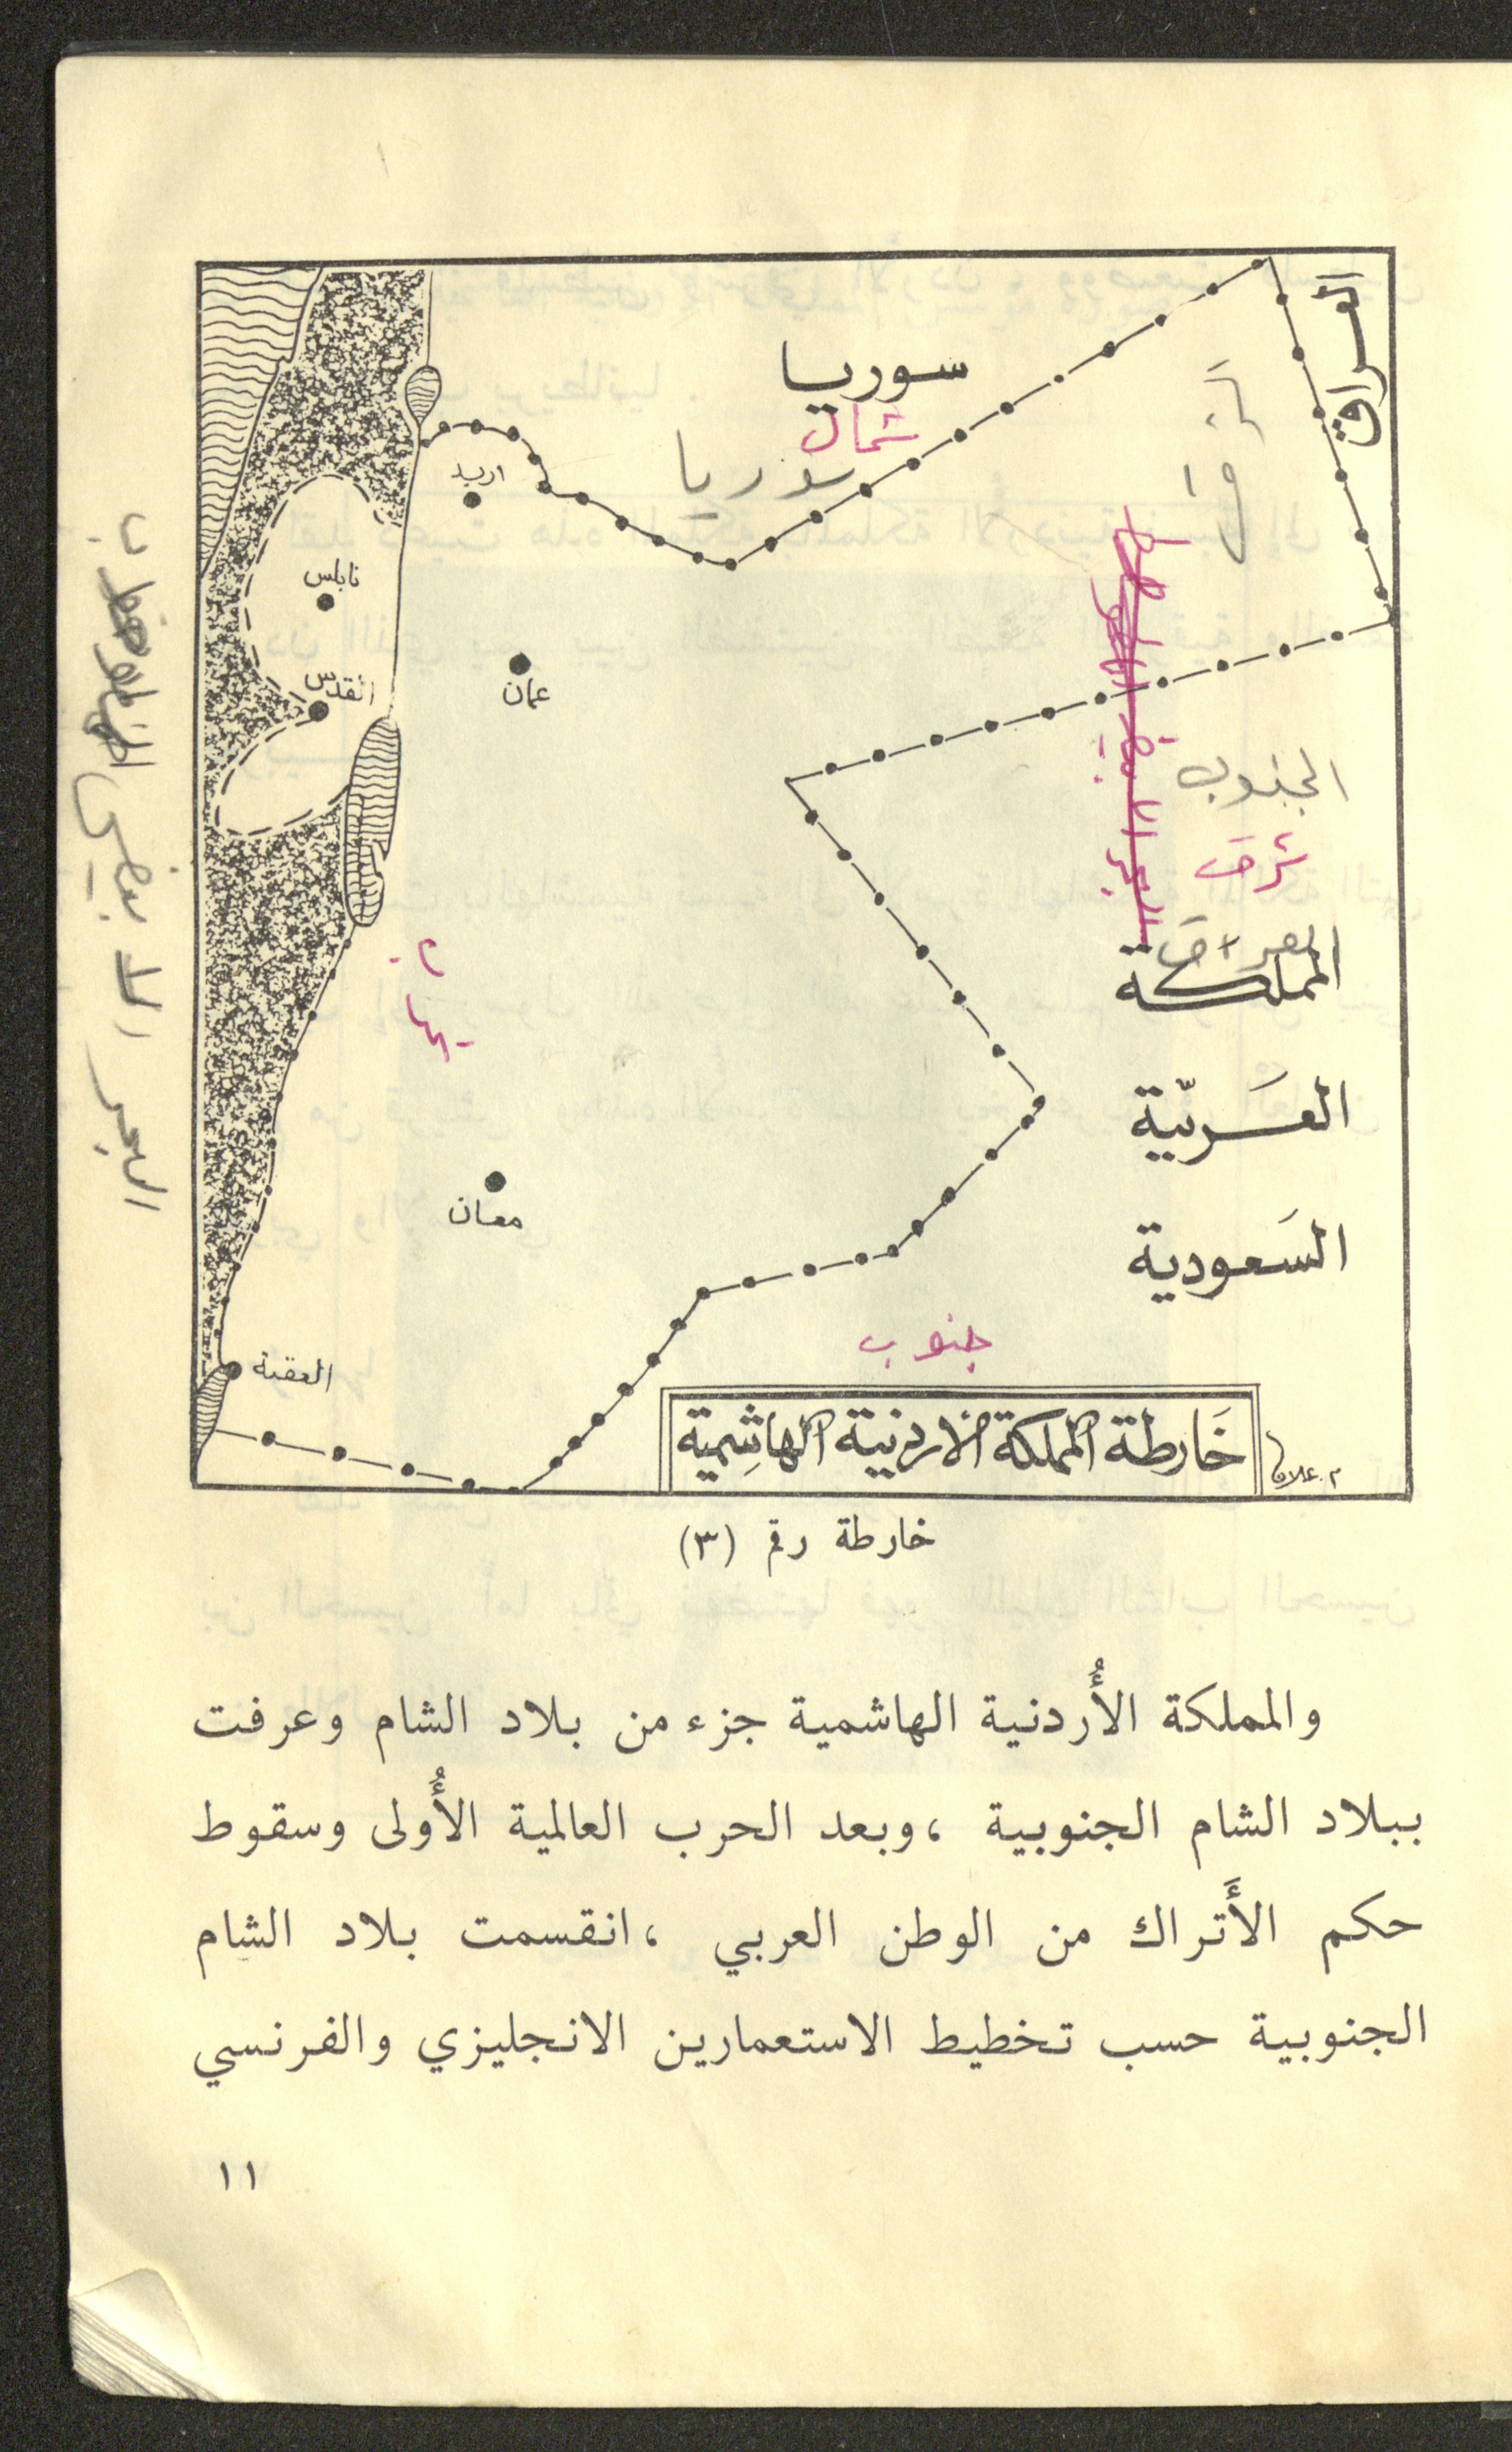 العراق
سوريا
شمال
سوريا
اربد
نابلس
القدس
عمان
الجنوب
شرق
العراق
المملكة
العربية
السعودية
معان
جنوب
العقبة
خارطة المملكة الاردنية الهاشمية
خارطة رقم (٣)
البحر الا بيض
والمملكة الأُردنية الهاشمية جزء من بلاد الشام وعرفت
ببلاد الشام الجنوبية ، وبعد الحرب العالمية الأُولى وسقوط
حكم الأَتراك من الوطن العربي ، انقسمت بلاد الشام
الجنوبية حسب تخطيط الاستعمارين الانجليزي والفرنسي
١١